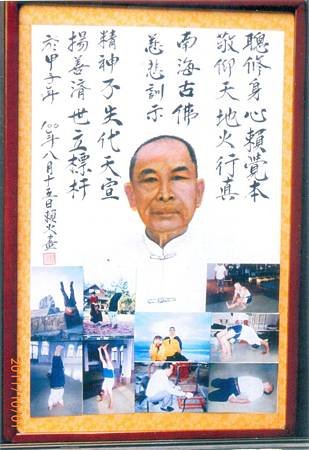 聰修身心賴覺本
敬仰天地火行真
南海古佛
慈悲訓示
精神不失代天宣
揚善濟世立標杆
於甲子年 一00年八月十五日賴火畫
2011/10/01